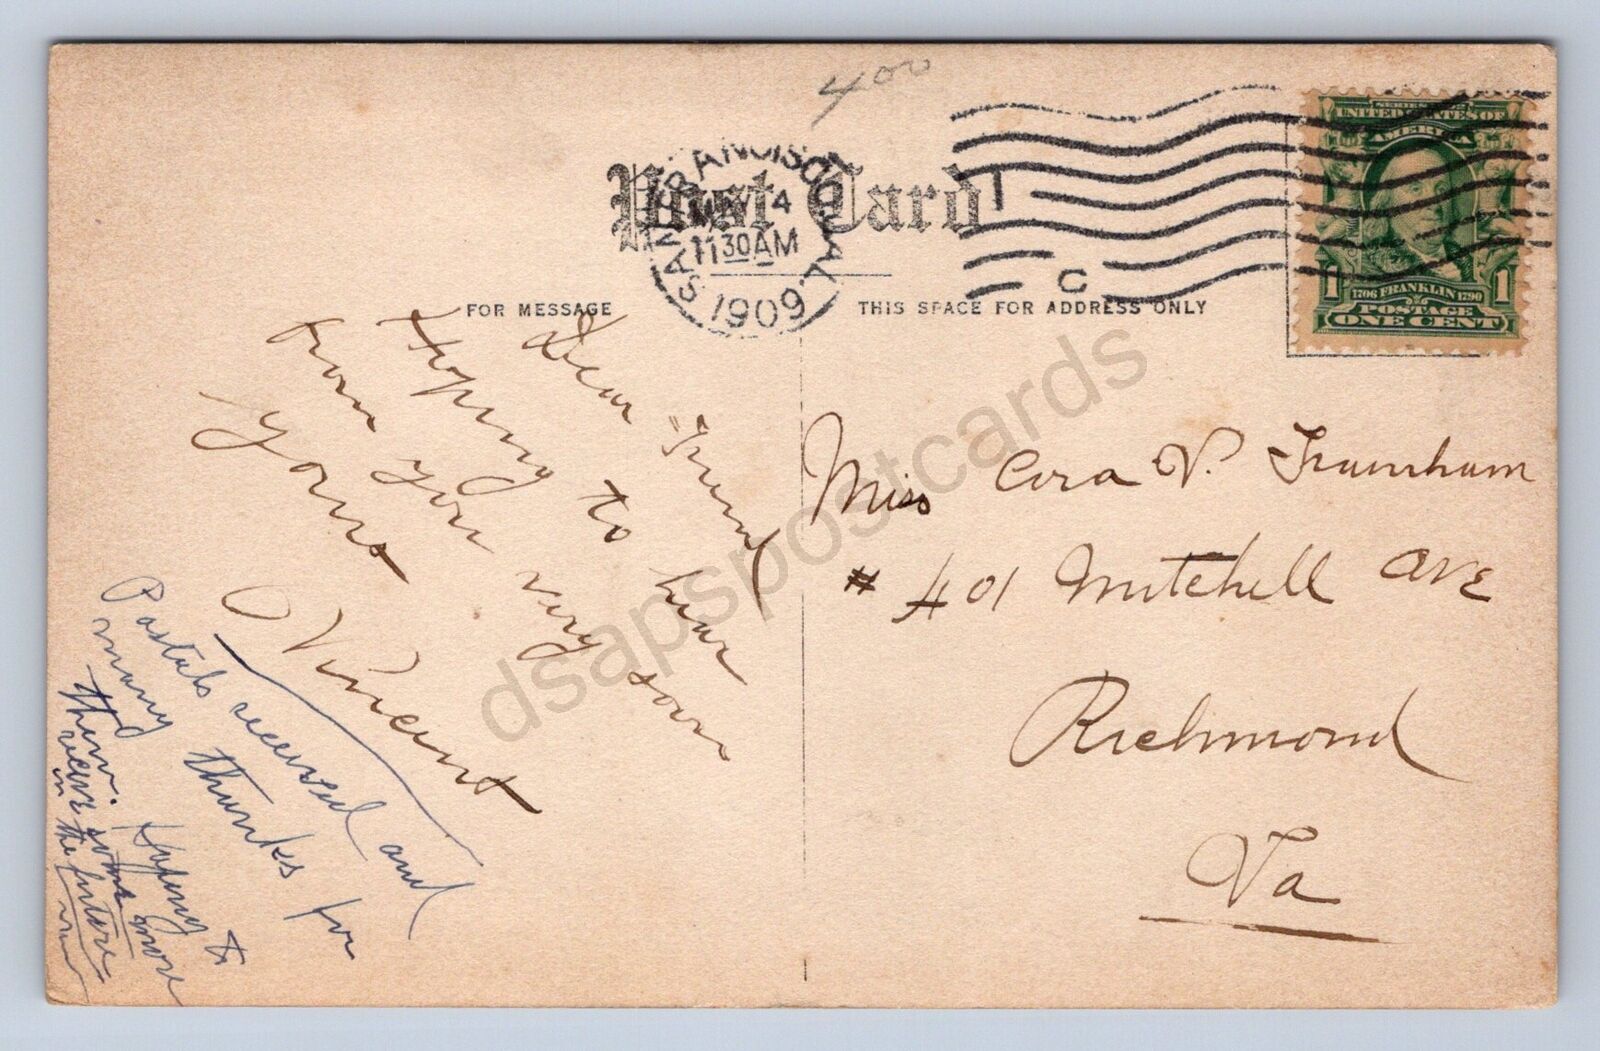 400
Post Card
SAN FRANCISCO, CAL.
MAY 4
11 30 AM
1909
1
C
SERIES 1902
UNITED STATES OF
AMERICA
1 1
1706 FRANKLIN 1790
POSTAGE
ONE CENT
FOR MESSAGE
THIS SPACE FOR ADDRESS ONLY
Dear "Friend
Hoping to hear
from you very soon
yours
Vincent
Postals received and
many thanks for
them. Hoping to
recive some more
in the future
Miss Cora V.
# 401 Mitchell Ave
Richmond
Va
dsapspostcards